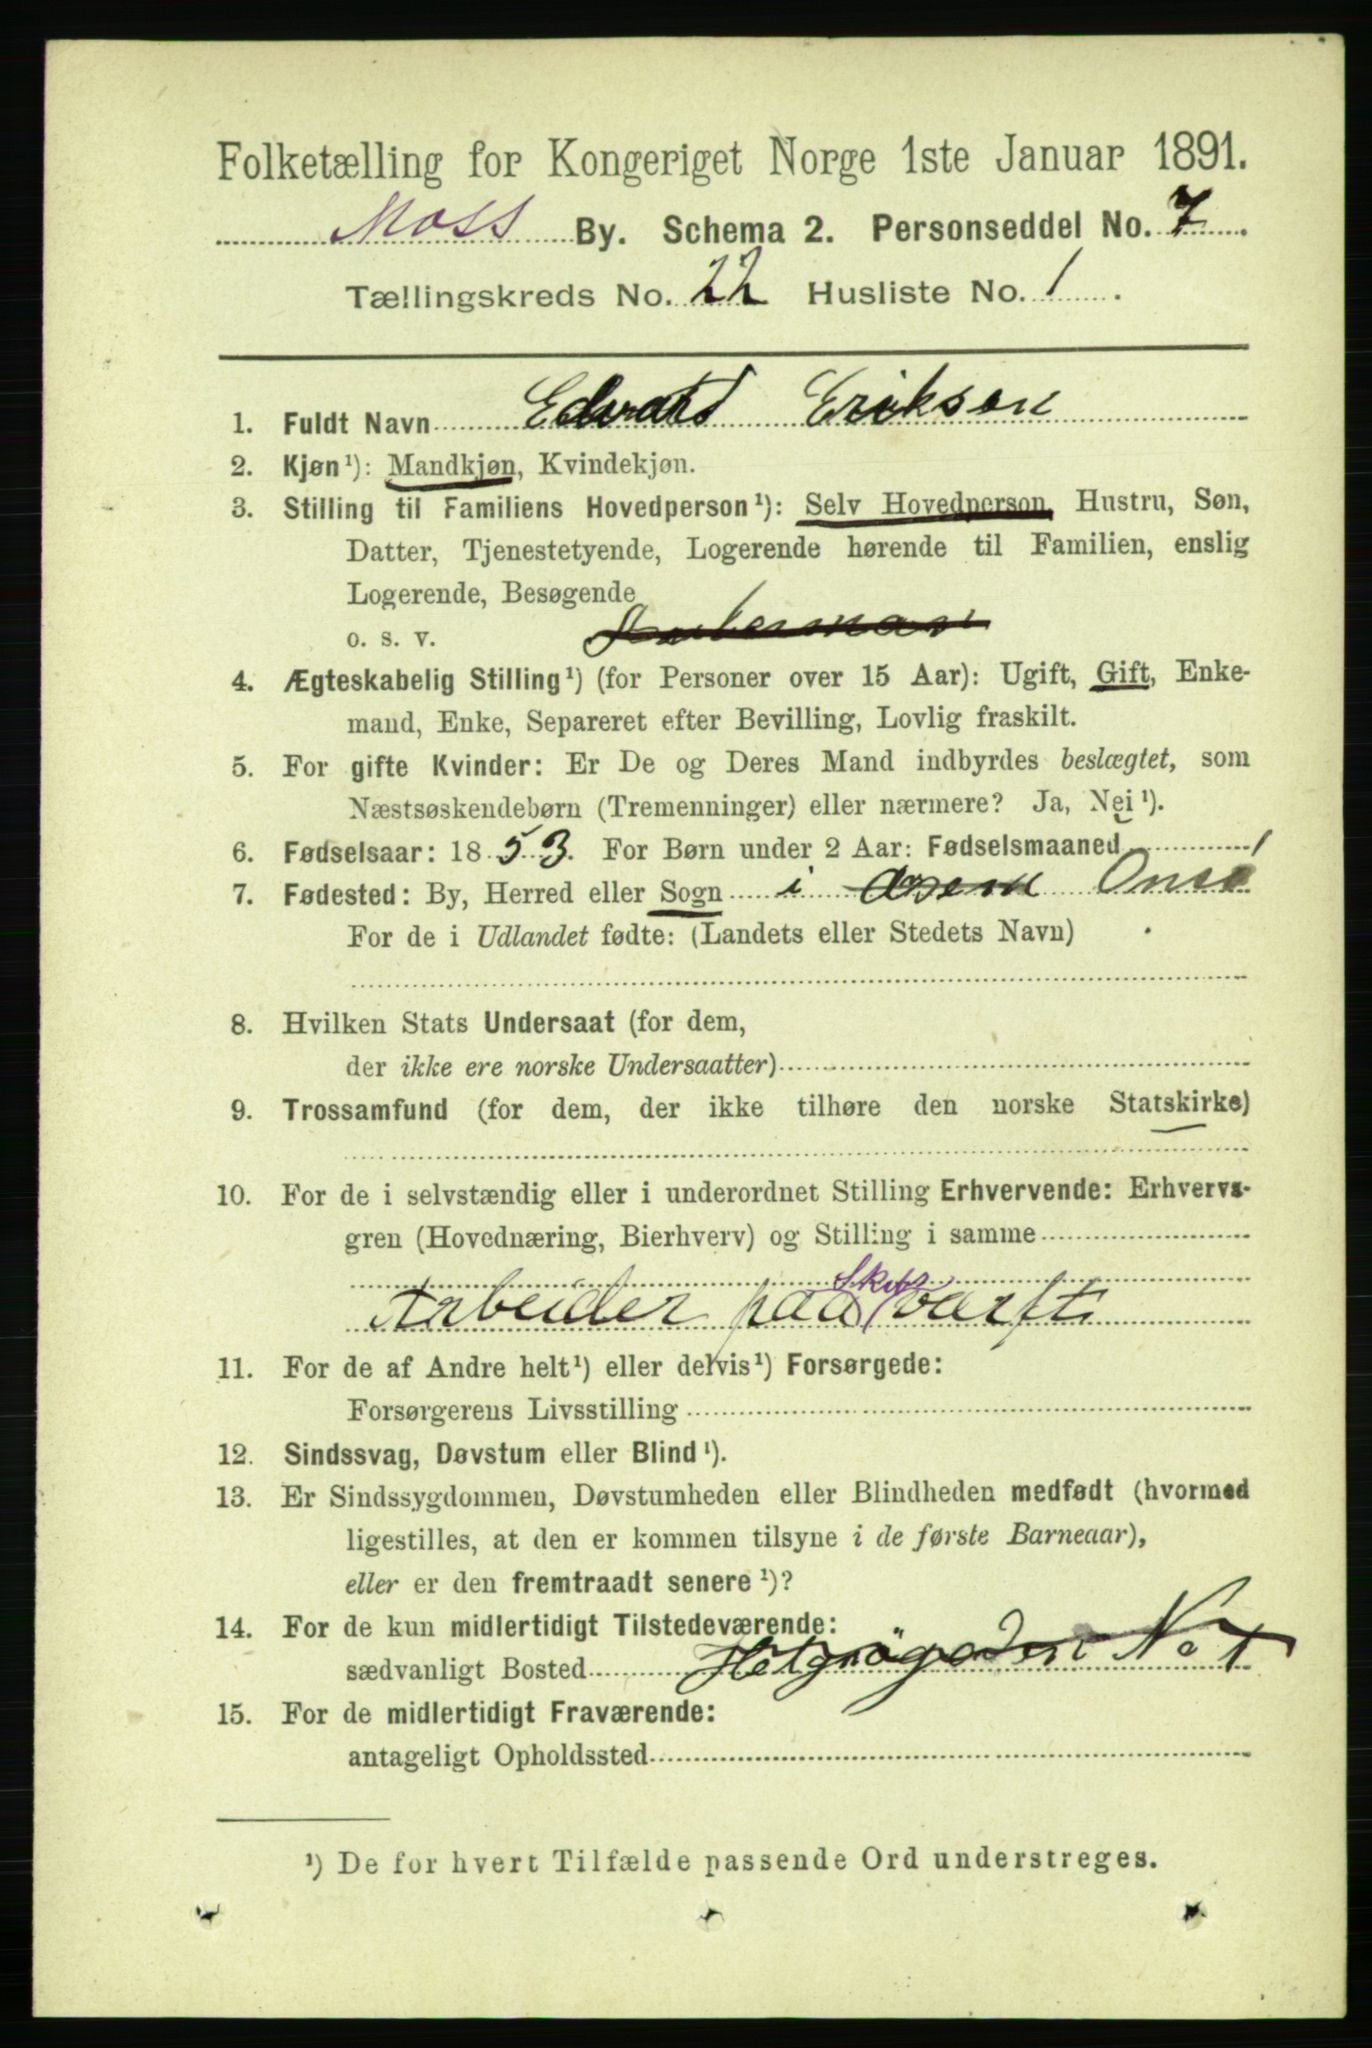 Folketælling for Kongeriget Norge 1ste Januar 1891.
Moss By. Schema 2. Personseddel No. 7.
Tællingskreds No. 22 Husliste No. 1.
1. Fuldt Navn Edvard Erikson
2. Kjøn¹): Mandkjøn, Kvindekjøn.
3. Stilling til Familiens Hovedperson¹): Selv Hovedperson, Hustru, Søn,
Datter, Tjenestetyende, Logerende hørende til Familien, enslig
Logerende, Besøgende
o. s. v.
4. Ægteskabelig Stilling¹) (for Personer over 15 Aar): Ugift, Gift, Enke-
mand, Enke, Separeret efter Bevilling, Lovlig fraskilt.
5. For gifte Kvinder: Er De og Deres Mand indbyrdes beslægtet, som
Næstsøskendebørn (Tremenninger) eller nærmere? Ja, Nei¹).
6. Fødselsaar: 1853. For Børn under 2 Aar: Fødselsmaaned
7. Fødested: By, Herred eller Sogn i Onsø
For de i Udlandet fødte: (Landets eller Stedets Navn)
8. Hvilken Stats Undersaat (for dem,
der ikke ere norske Undersaatter)
9. Trossamfund (for dem, der ikke tilhøre den norske Statskirke)
10. For de i selvstændig eller i underordnet Stilling Erhvervende: Erhvervs-
gren (Hovednæring, Bierhverv) og Stilling i samme
Arbeider paa Skibsværft
11. For de af Andre helt¹) eller delvis¹) Forsørgede:
Forsørgerens Livsstilling
12. Sindssvag, Døvstum eller Blind¹).
13. Er Sindssygdommen, Døvstumheden eller Blindheden medfødt (hvormed
ligestilles, at den er kommen tilsyne i de første Barneaar),
eller er den fremtraadt senere¹)?
14. For de kun midlertidigt Tilstedeværende:
sædvanligt Bosted No 1
15. For de midlertidigt Fraværende:
antageligt Opholdssted
¹) De for hvert Tilfælde passende Ord understreges.